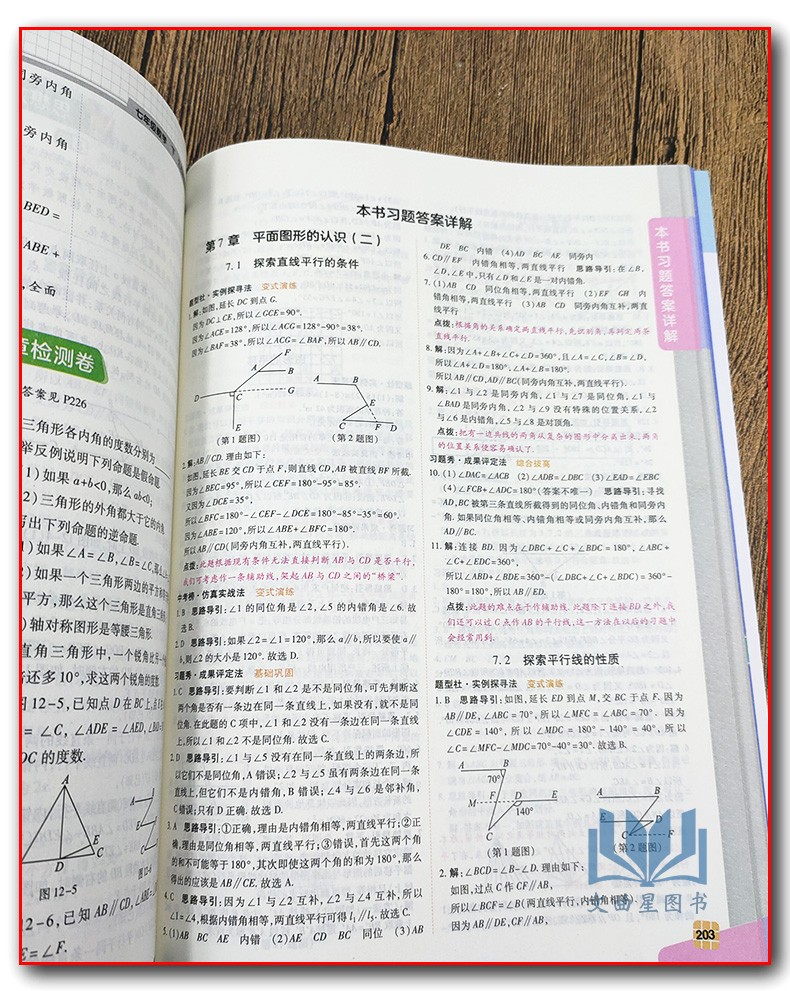 旁内角
七年级数学
旁内角
BED =
ABE +
,全面
检测卷
答案见 P226
三角形各内角的度数分别为
举反例说明下列命题是假命题
1)如果 a+b<0,那么 ab<0;
2)三角形的外角都大于它的内角
写出下列命题的逆命题
1)如果∠A=∠B,∠B=∠C,那么
)如果一个三角形两边的平方和
平方,那么这个三角形是直角三
)轴对称图形是等腰三角形.
直角三角形中,一个锐角比另一
还多10°,求这两个锐角的度数
12-5,已知点 D 在 BC 上,
= ∠C, ∠ADE = ∠AED,
DC 的度数.
A
D
C
E
图 12-5
12-6,已知 AB∥CD,
E=∠F.
本书习题答案详解
第 7 章 平面图形的认识(二)
7.1 探索直线平行的条件
题型社·实例探寻法 变式演练
1.解:如图,延长 DC 到点 G.
因为 DC⊥CE,所以∠GCE=90°.
因为∠ACE=128°,所以∠ACG=128°-90°=38°.
因为∠BAF=38°,所以∠ACG=∠BAF,所以 AB∥CD.
F
A B
D C G
E
(第 1 题图)
A B
E
C F D
(第 2 题图)
2.解:AB∥CD. 理由如下:
如图,延长 BE 交 CD 于点 F,则直线 CD,AB 被直线 BF 所截.
因为∠BEC=95°,所以∠CEF=180°-95°=85°.
又因为∠DCE=35°,
所以∠BFC=180°-∠CEF-∠DCE=180°-85°-35°=60°.
因为∠ABE=120°,所以∠ABE+∠BFC=180°.
所以 AB∥CD(同旁内角互补,两直线平行).
点拨:此题根据现有条件无法直接判断 AB 与 CD 是否平行,
我们可考虑作一条辅助线,架起 AB 与 CD 之间的“桥梁”.
中考榜·仿真实战法 变式演练
1.B 思路导引:∠1 的同位角是∠2,∠5 的内错角是∠6. 故
选 B.
2.D 思路导引:如果∠2=∠1=120°,那么 a∥b,所以要使 a∥
b,则∠2 的大小是 120°. 故选 D.
习题秀·成果评定法 基础巩固
1.C 思路导引:要判断∠1 和∠2 是不是同位角,可先判断这
两个角是否有一条边在同一条直线上,如果没有,就不是同
位角. 在此题的 C 项中,∠1 和∠2 没有一条边在同一条直线
上,所以∠1 和∠2 不是同位角. 故选 C.
2.D 思路导引:∠1 与∠5 没有在同一条直线上的两条边,所
以它们不是同位角,A 错误;∠2 与∠5 虽有两条边在同一条
直线上,但它们不是内错角,B 错误;∠4 与∠6 是邻补角,
C 错误;只有 D 正确. 故选 D.
3.A 思路导引:①正确,理由是内错角相等,两直线平行;②正
确,理由是同位角相等,两直线平行;③错误,首先这两个角
的和不可能等于 180°,其次即使这两个角的和为 180°,那么
得出的应该是 AB∥CE. 故选 A.
4.C 思路导引:因为∠1 与∠2 互补,∠2 与∠4 互补,所以
∠1=∠4,根据内错角相等,两直线平行可得 l₁∥l₃. 故选 C.
5.(1)AB BC AE 内错 (2)AE CD BC 同位 (3)AB
DE BC 内错 (4)AD BC AE 同旁内
6.CD∥EF 内错角相等,两直线平行 思路导引:在∠B,
∠D,∠E 中,只有∠D 和∠E 是一对内错角.
7.(1)AB CD 同位角相等,两直线平行 (2)EF GH 内
错角相等,两直线平行 (3)AB CD 同旁内角互补,两直
线平行
点拨:根据角的关系确定两直线平行,先识别角,再判定两条
直线平行.
8.解:因为∠A+∠B+∠C+∠D=360°,且∠A=∠C,∠B=∠D,
所以∠A+∠D=180°,∠A+∠B=180°.
所以 AB∥CD,AD∥BC(同旁内角互补,两直线平行).
9.解:∠1 与∠2 是同旁内角,∠1 与∠7 是同位角,∠1 与
∠BAD 是同旁内角,∠2 与∠9 没有特殊的位置关系,∠2
与∠6 是内错角,∠5 与∠8 是对顶角.
点拨:把有一边共线的两角从复杂的图形中分离出来,两角
的位置关系便容易确认了.
习题秀·成果评定法 综合拔高
10.(1)∠DAC=∠ACB (2)∠ADB=∠DBC (3)∠EAD=∠EBC
(4)∠FCB+∠ADC=180°(答案不唯一) 思路导引:寻找
AD,BC 被第三条直线所截得到的同位角、内错角和同旁内
角. 如果同位角相等、内错角相等或同旁内角互补,那么
AD∥BC.
11.解:连接 BD. 因为∠DBC+∠C+∠BDC=180°,∠ABC+
∠C+∠EDC=360°,
所以∠ABD+∠BDE=360°-(∠DBC+∠C+∠BDC)=360°-
180°=180°,所以 AB∥ED.
点拨:此题的难点在于作辅助线. 此题除了连接 BD 之外,我
们还可以过 C 点作 AB 的平行线,这一方法在以后的习题中
会经常用到.
7.2 探索平行线的性质
题型社·实例探寻法 变式演练
1.B 思路导引:如图,延长 ED 到点 M,交 BC 于点 F. 因为
AB∥DE,∠ABC=70°,所以∠MFC=∠ABC=70°. 因为
∠CDE=140°,所以∠MDC=180°-140°=40°,所以
∠C=∠MFC-∠MDC=70°-40°=30°. 故选 B.
A B
70°
M F D E
140°
C
(第 1 题图)
A B
D E
C F
(第 2 题图)
2.解:∠BCD=∠B-∠D. 理由如下:
如图,过点 C 作 CF∥AB,
所以∠BCF=∠B(两直线平行,内错角相等).
因为 AB∥DE,CF∥AB,
本书习题答案详解
文曲星图书
203